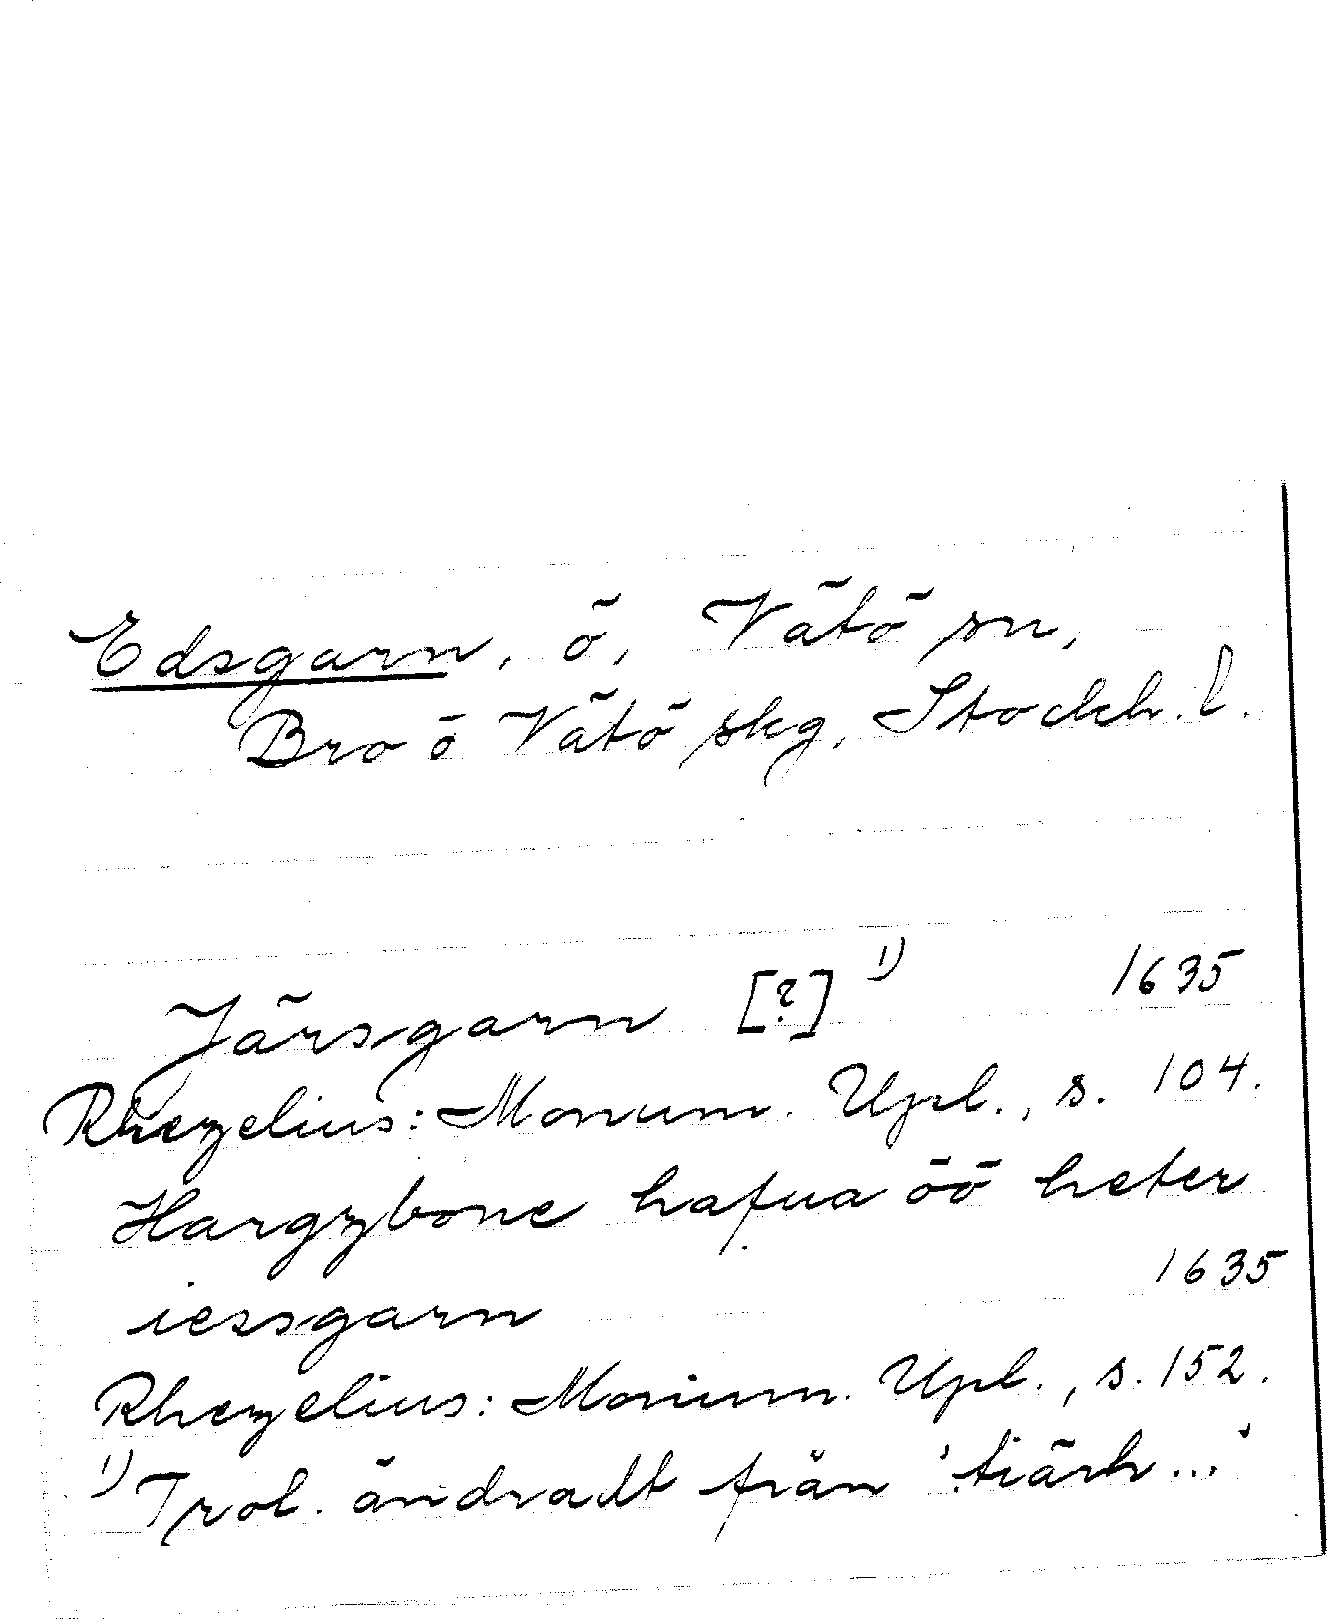 Edsgarn, ö, Vätö sn,
Bro ö Vätö skg, Stockh. l.
Järsgarn [?] 1) 1635
Rhezelius: Monum. Upl., s. 104.
Hargzbone hafua öö heter
iessgarn 1635
Rhezelius: Monum. Upl., s. 152.
1) Trol. ändradt från 'tiärh...'